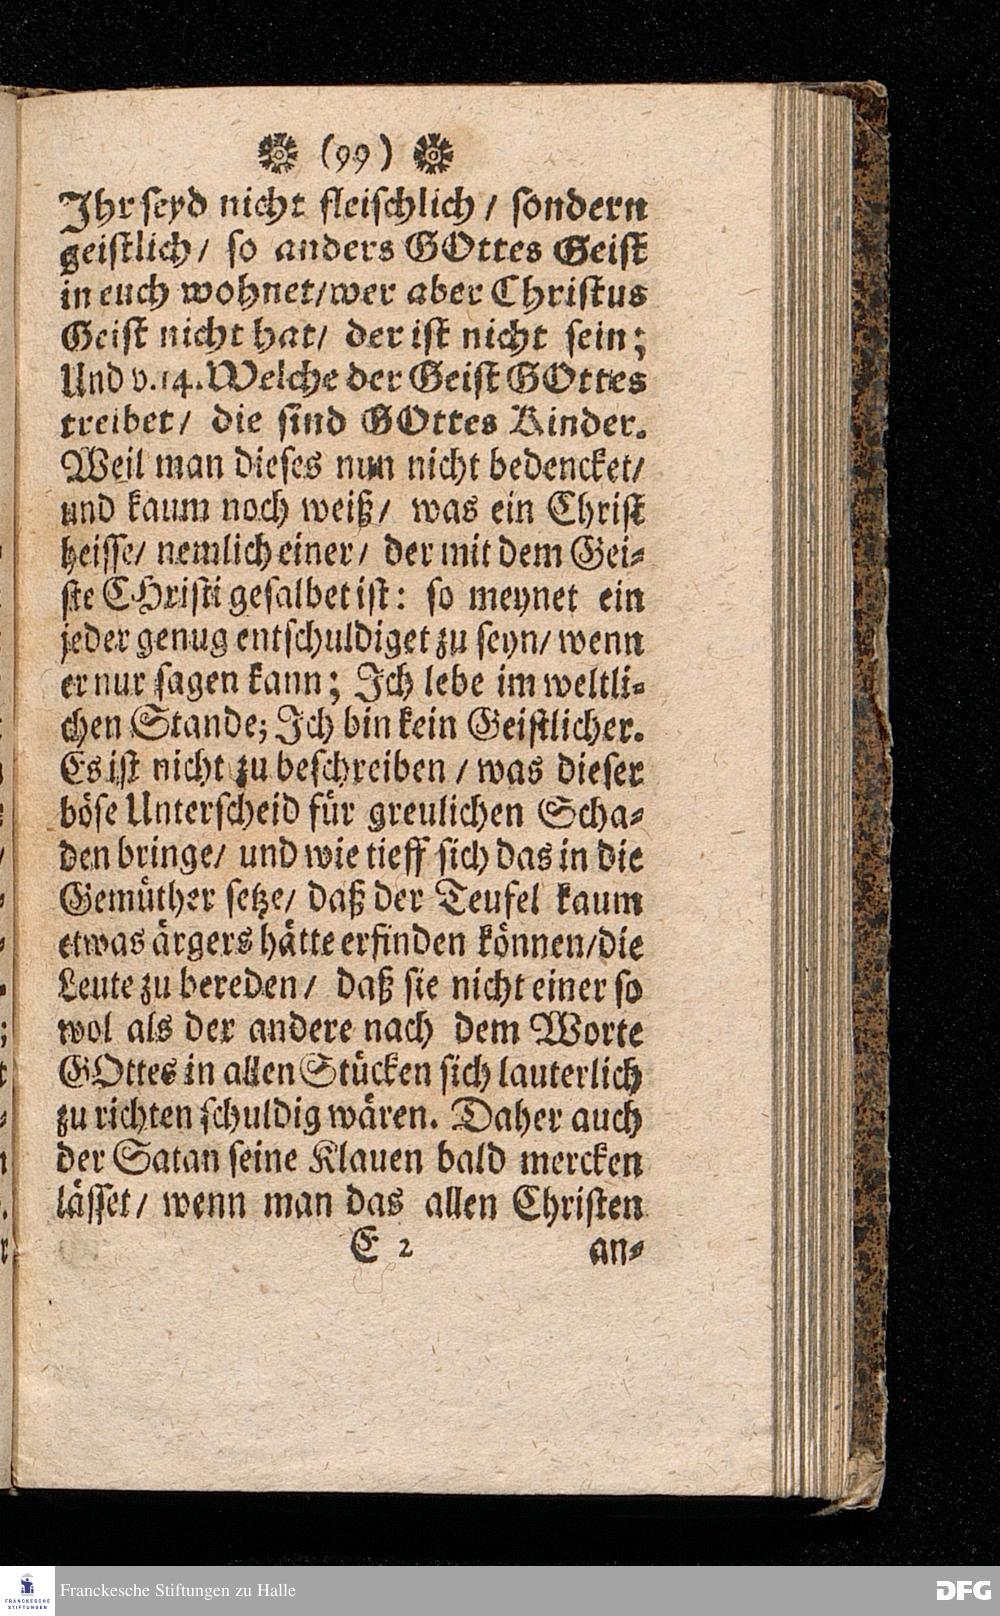 (99)
Ihr seyd nicht fleischlich / sondern
geistlich / so anders GOttes Geist
in euch wohnet/wer aber Christus
Geist nicht hat/ der ist nicht sein;
Und v.14. Welche der Geist GOttes
treibet/ die sind GOttes Kinder.
Weil man dieses nun nicht bedencket/
und kaum noch weiß/ was ein Christ
heisse/ nemlich einer/ der mit dem Gei-
ste CHristi gesalbet ist: so meynet ein
jeder genug entschuldiget zu seyn/ wenn
er nur sagen kann; Ich lebe im weltli-
chen Stande; Ich bin kein Geistlicher.
Es ist nicht zu beschreiben / was dieser
böse Unterscheid für greulichen Scha-
den bringe/ und wie tieff sich das in die
Gemüther setze/ daß der Teufel kaum
etwas ärgers hätte erfinden können/die
Leute zu bereden/ daß sie nicht einer so
wol als der andere nach dem Worte
GOttes in allen Stücken sich lauterlich
zu richten schuldig wären. Daher auch
der Satan seine Klauen bald mercken
lässet/ wenn man das allen Christen
E 2 an-
FRANCKESCHE STIFTUNGEN Franckesche Stiftungen zu Halle DFG